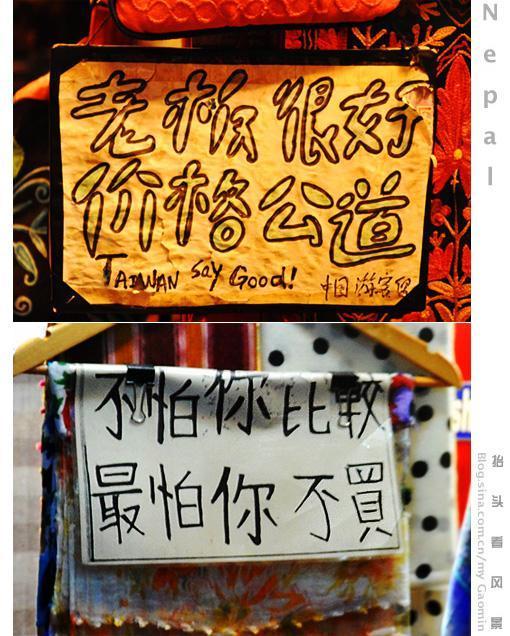 老板很好
价格公道
TAIWAN Say Good!
中国游客留
Nepal
不怕你比較
最怕你不買
抬头看风景
Blog.sina.com.cn/my Gaomin